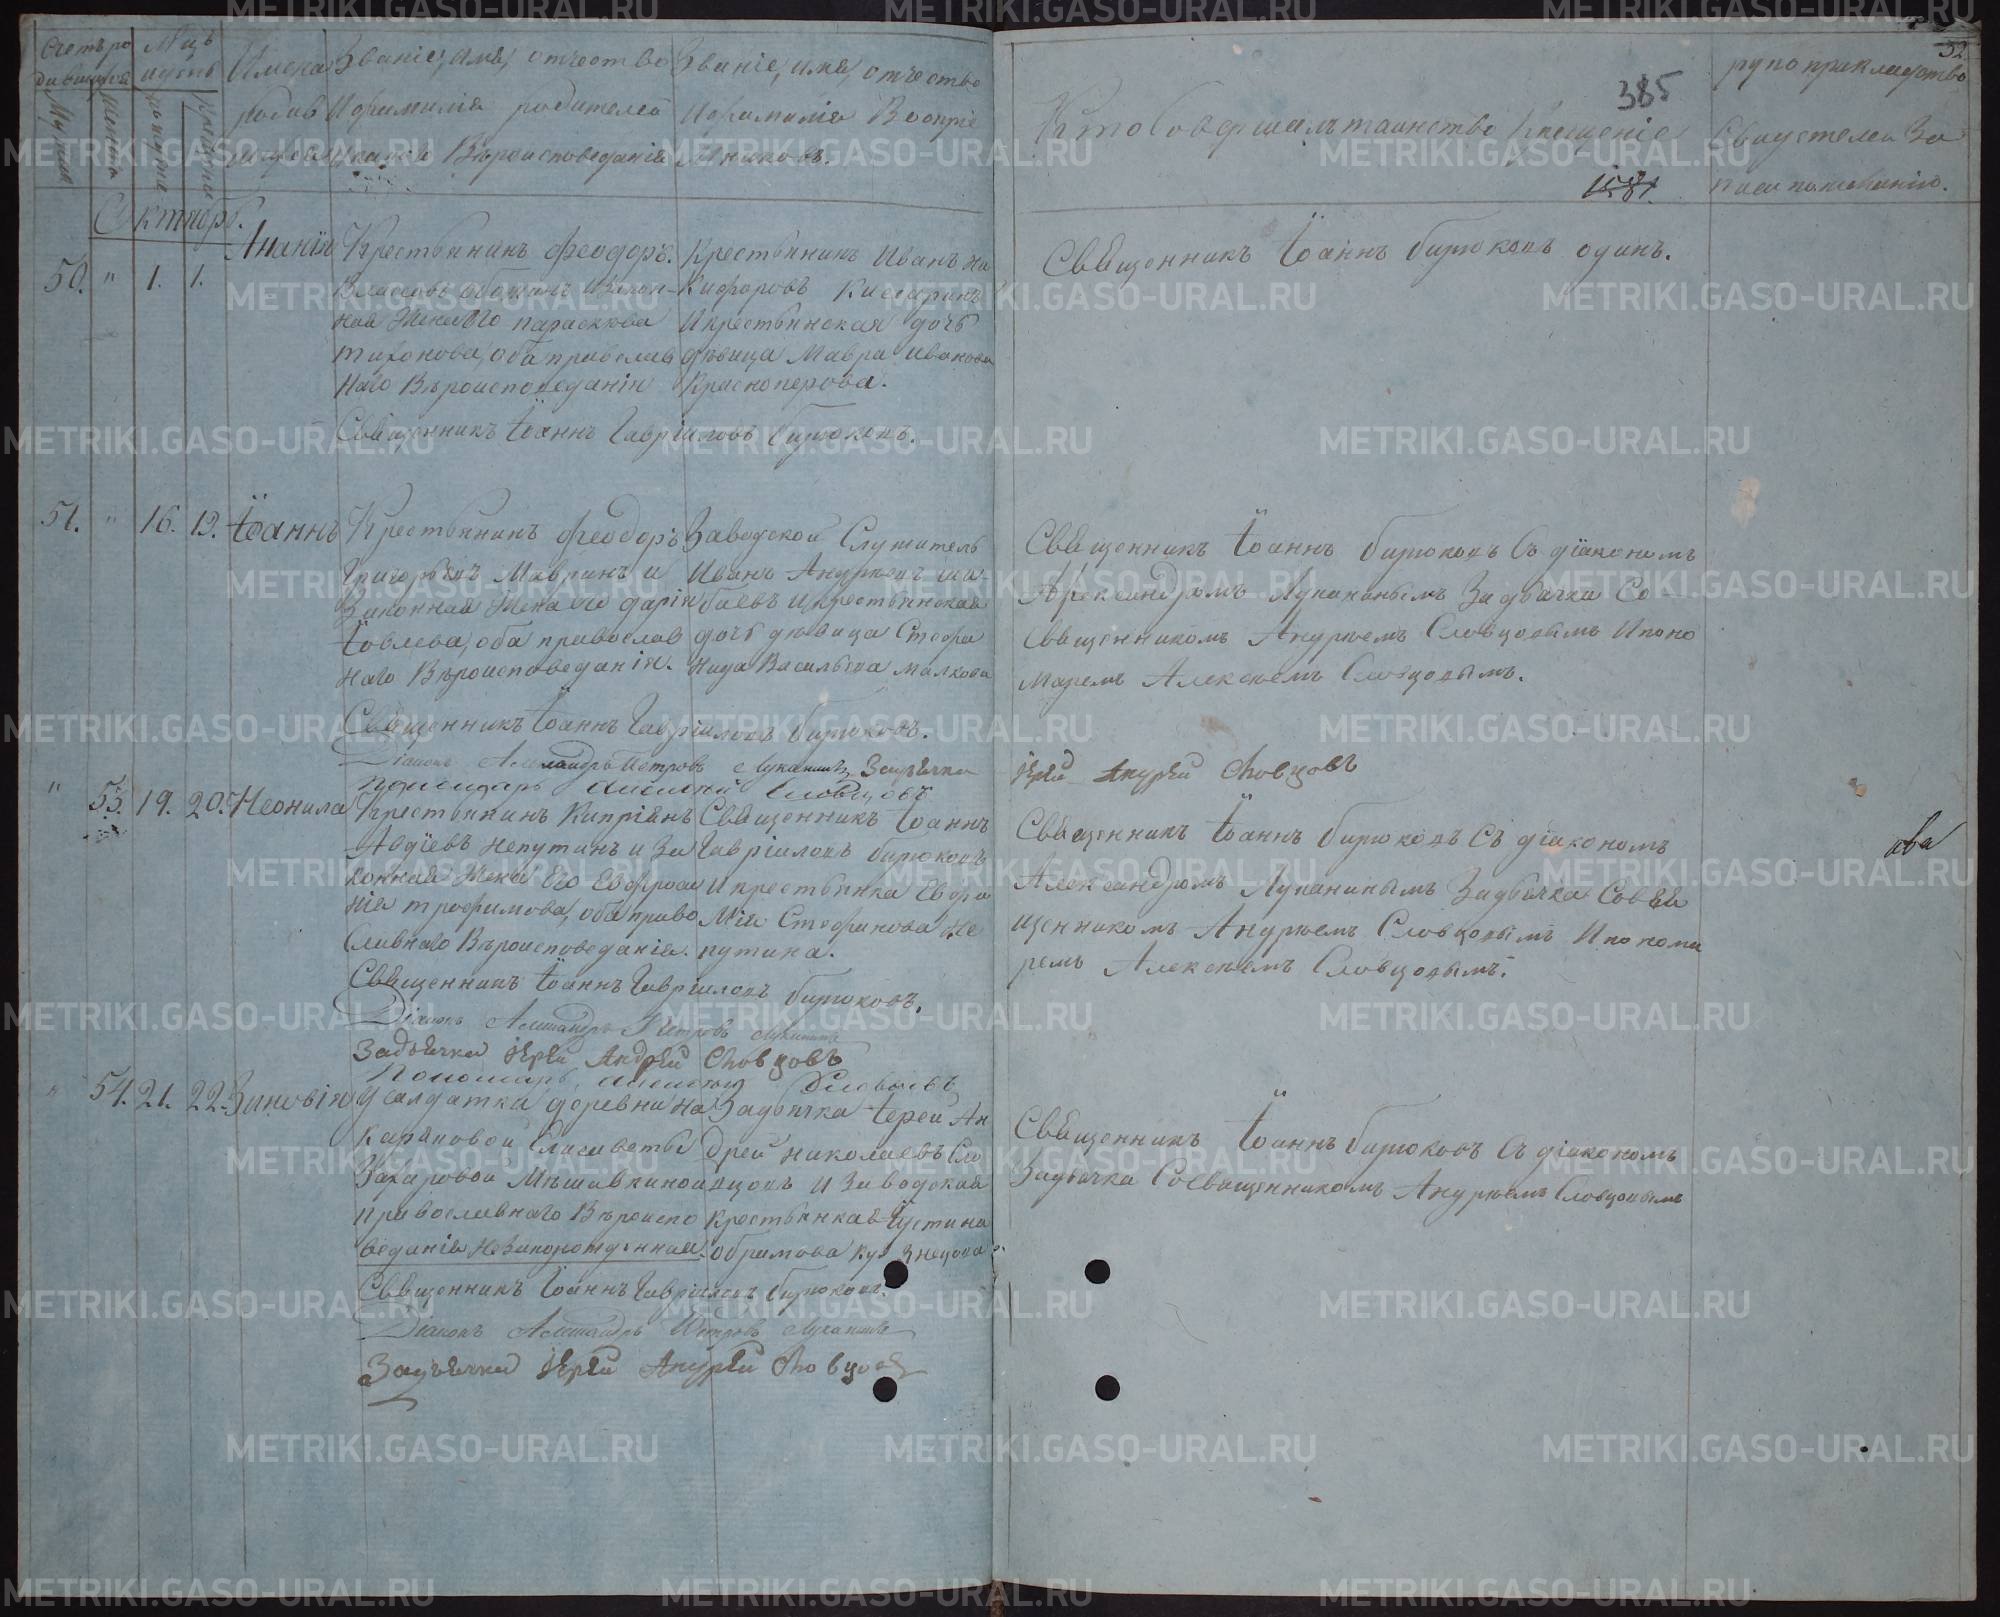 Счетъ ро
дившихся
Мѣсяцъ
и день
Имена
родив
шихся
Званіе, имя, отчество
и фамилія родителей
и какого Вѣроисповеданія
Званіе, имя, отчество
и фамилія Воспріе
мниковъ.
Кто совершалъ таинство Крещенія
385
1581.
52
рукоприкладство
Свидетелей за
писи по желанію.
Октябрь.
50. " 1. 1. Ананія
Крестьянинъ Феодоръ
ная Жена Его параскева
тихонова, оба православ
наго Вѣроисповеданія
Священникъ Іоаннъ Гавріиловъ бирюковъ.
Крестьянинъ Иванъ Ни
кифоровъ
и крестьянская дочь
дѣвица Мавра иванова
Красноперова.
Священникъ Іоаннъ бирюковъ одинъ.
51. " 16. 19. Іоаннъ
Крестьянинъ Феодоръ
Григорьевъ Мавринъ и
Законная Жена Его дарія
Іовлева, оба православ
наго Вѣроисповеданія.
Священникъ Іоаннъ Гавріиловъ бирюковъ.
Діаконъ Александръ Петровъ Луканинъ Задьячка
Пономарь Алексей Словцовъ
Заводской Служитель
Иванъ Андреевъ ши-
баевъ и крестьянская
дочь дѣвица Стефа
нида Васильева малкова
Священникъ Іоаннъ бирюковъ Съ діакономъ
Александромъ Луканинымъ Задьячка Со-
священникомъ Андреемъ Словцовымъ И поно
маремъ Алексеемъ Словцовымъ.
Іерей Андрей Словцовъ
" 53. 19. 20. Неонила
Крестьянинъ Кипріянъ
Авдіевъ Непутинъ и За
конная Жена Его Евфроси
нія трофимова, оба право
славнаго Вѣроисповеданія.
Священникъ Іоаннъ Гавріиловъ бирюковъ.
Діаконъ Александръ Петровъ Луканинъ
Задьячка Іерей Андрей Словцовъ
Пономарь Алексей Словцовъ
Священникъ Іоаннъ
Гавріиловъ бирюковъ
И крестьянка Евфи
мія Стефанова Не
путина.
Священникъ Іоаннъ бирюковъ Съ діакономъ
Александромъ Луканинымъ Задьячка Совѣя
щенникомъ Андреемъ Словцовымъ И понома
ремъ Алексеемъ Словцовымъ.
" 54. 21. 22. Зиновія
У салдатки деревни
Елисаветы
Захаровой Мѣшавкиной
православнаго Вѣроиспо
веданія Незаконорожденная.
Священникъ Іоаннъ Гавріиловъ бирюковъ.
Діаконъ Александръ Петровъ Луканинъ
Задьячка Іерей Андрей Словцовъ
Задьячка Іерей Ан
дрей николаевъ Сло
вцовъ И Заводская
Крестьянская Іустина
Ефимова Кузнецова
Священникъ Іоаннъ бирюковъ Съ діакономъ
Задьячка Сосвященникомъ Андреемъ Словцовымъ